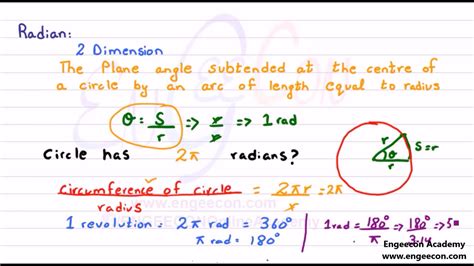 Radian:
2 Dimension
The Plane angle subtended at the centre of
a circle by an arc of length equal to radius
θ = S/r => r/r => 1 rad
r
r
θ
S=r
Circle has 2π radians?
Circumference of circle / radius = 2πr/r = 2π
www.engeecon.com
1 revolution = 2π rad = 360°
π rad = 180°
1 rad = 180°/π => 180°/3.14 => 5
Engeecon Academy
www.engeecon.com